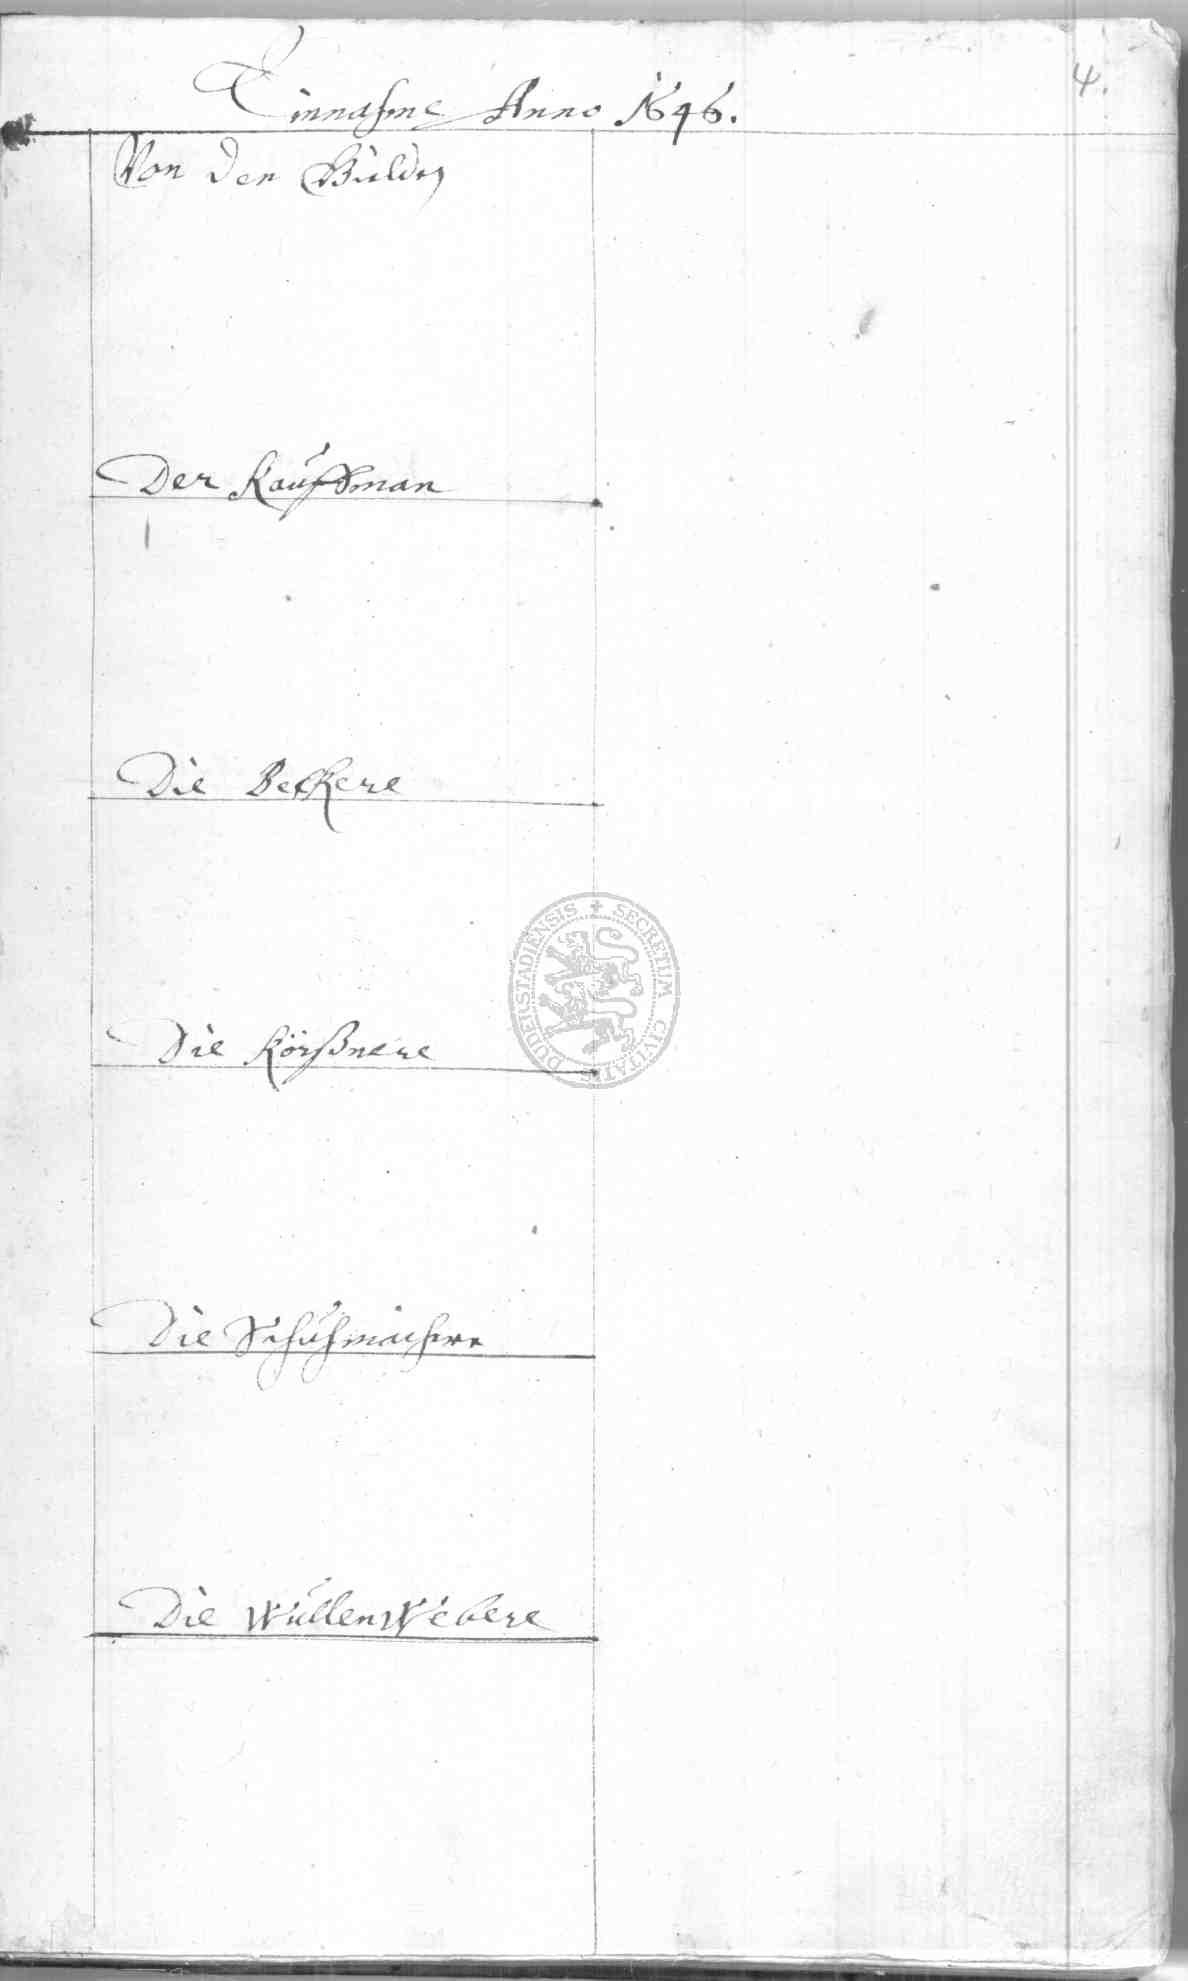 Einnahme Anno 1646.
4.
Von den Gülden
Der Kauffman
Die Beckere
Die Körßnere
DUDERSTADIENSIS + SECRETUM CIVITATIS
Die Schuhmachere
Die Wüllenwebere